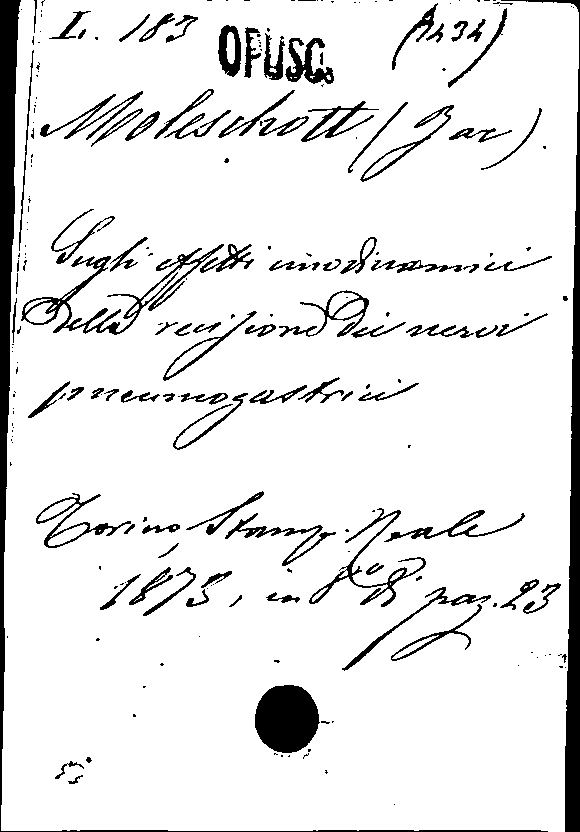 I. 183 OPUSC. (1434)
Moleschott (Jac)
Sugli effetti emodinamici
della recisione dei nervi
pneumogastrici
Torino, Stamp. Reale
1873, in 8vo di pag. 23